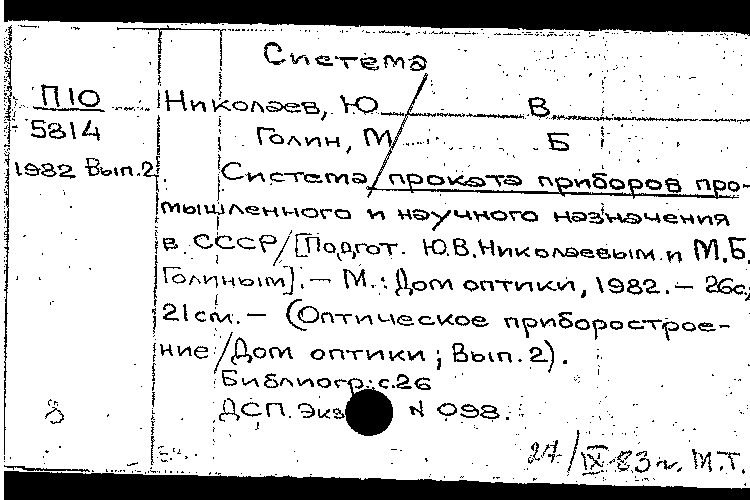 Система
П10
5814
1982 Вып.2
Николаев, Ю В
Голин, М Б
Система проката приборов про-
мышленного и научного назначения
в СССР/[Подгот. Ю.В.Николаевым и М.Б.
Голиным].— М.: Дом оптики, 1982.— 26с.;
21см.— (Оптическое приборострое-
ние/Дом оптики; Вып.2).
Библиогр.: с.26
ДСП. Экз N 098.
27/IX 83 г. М.Т.